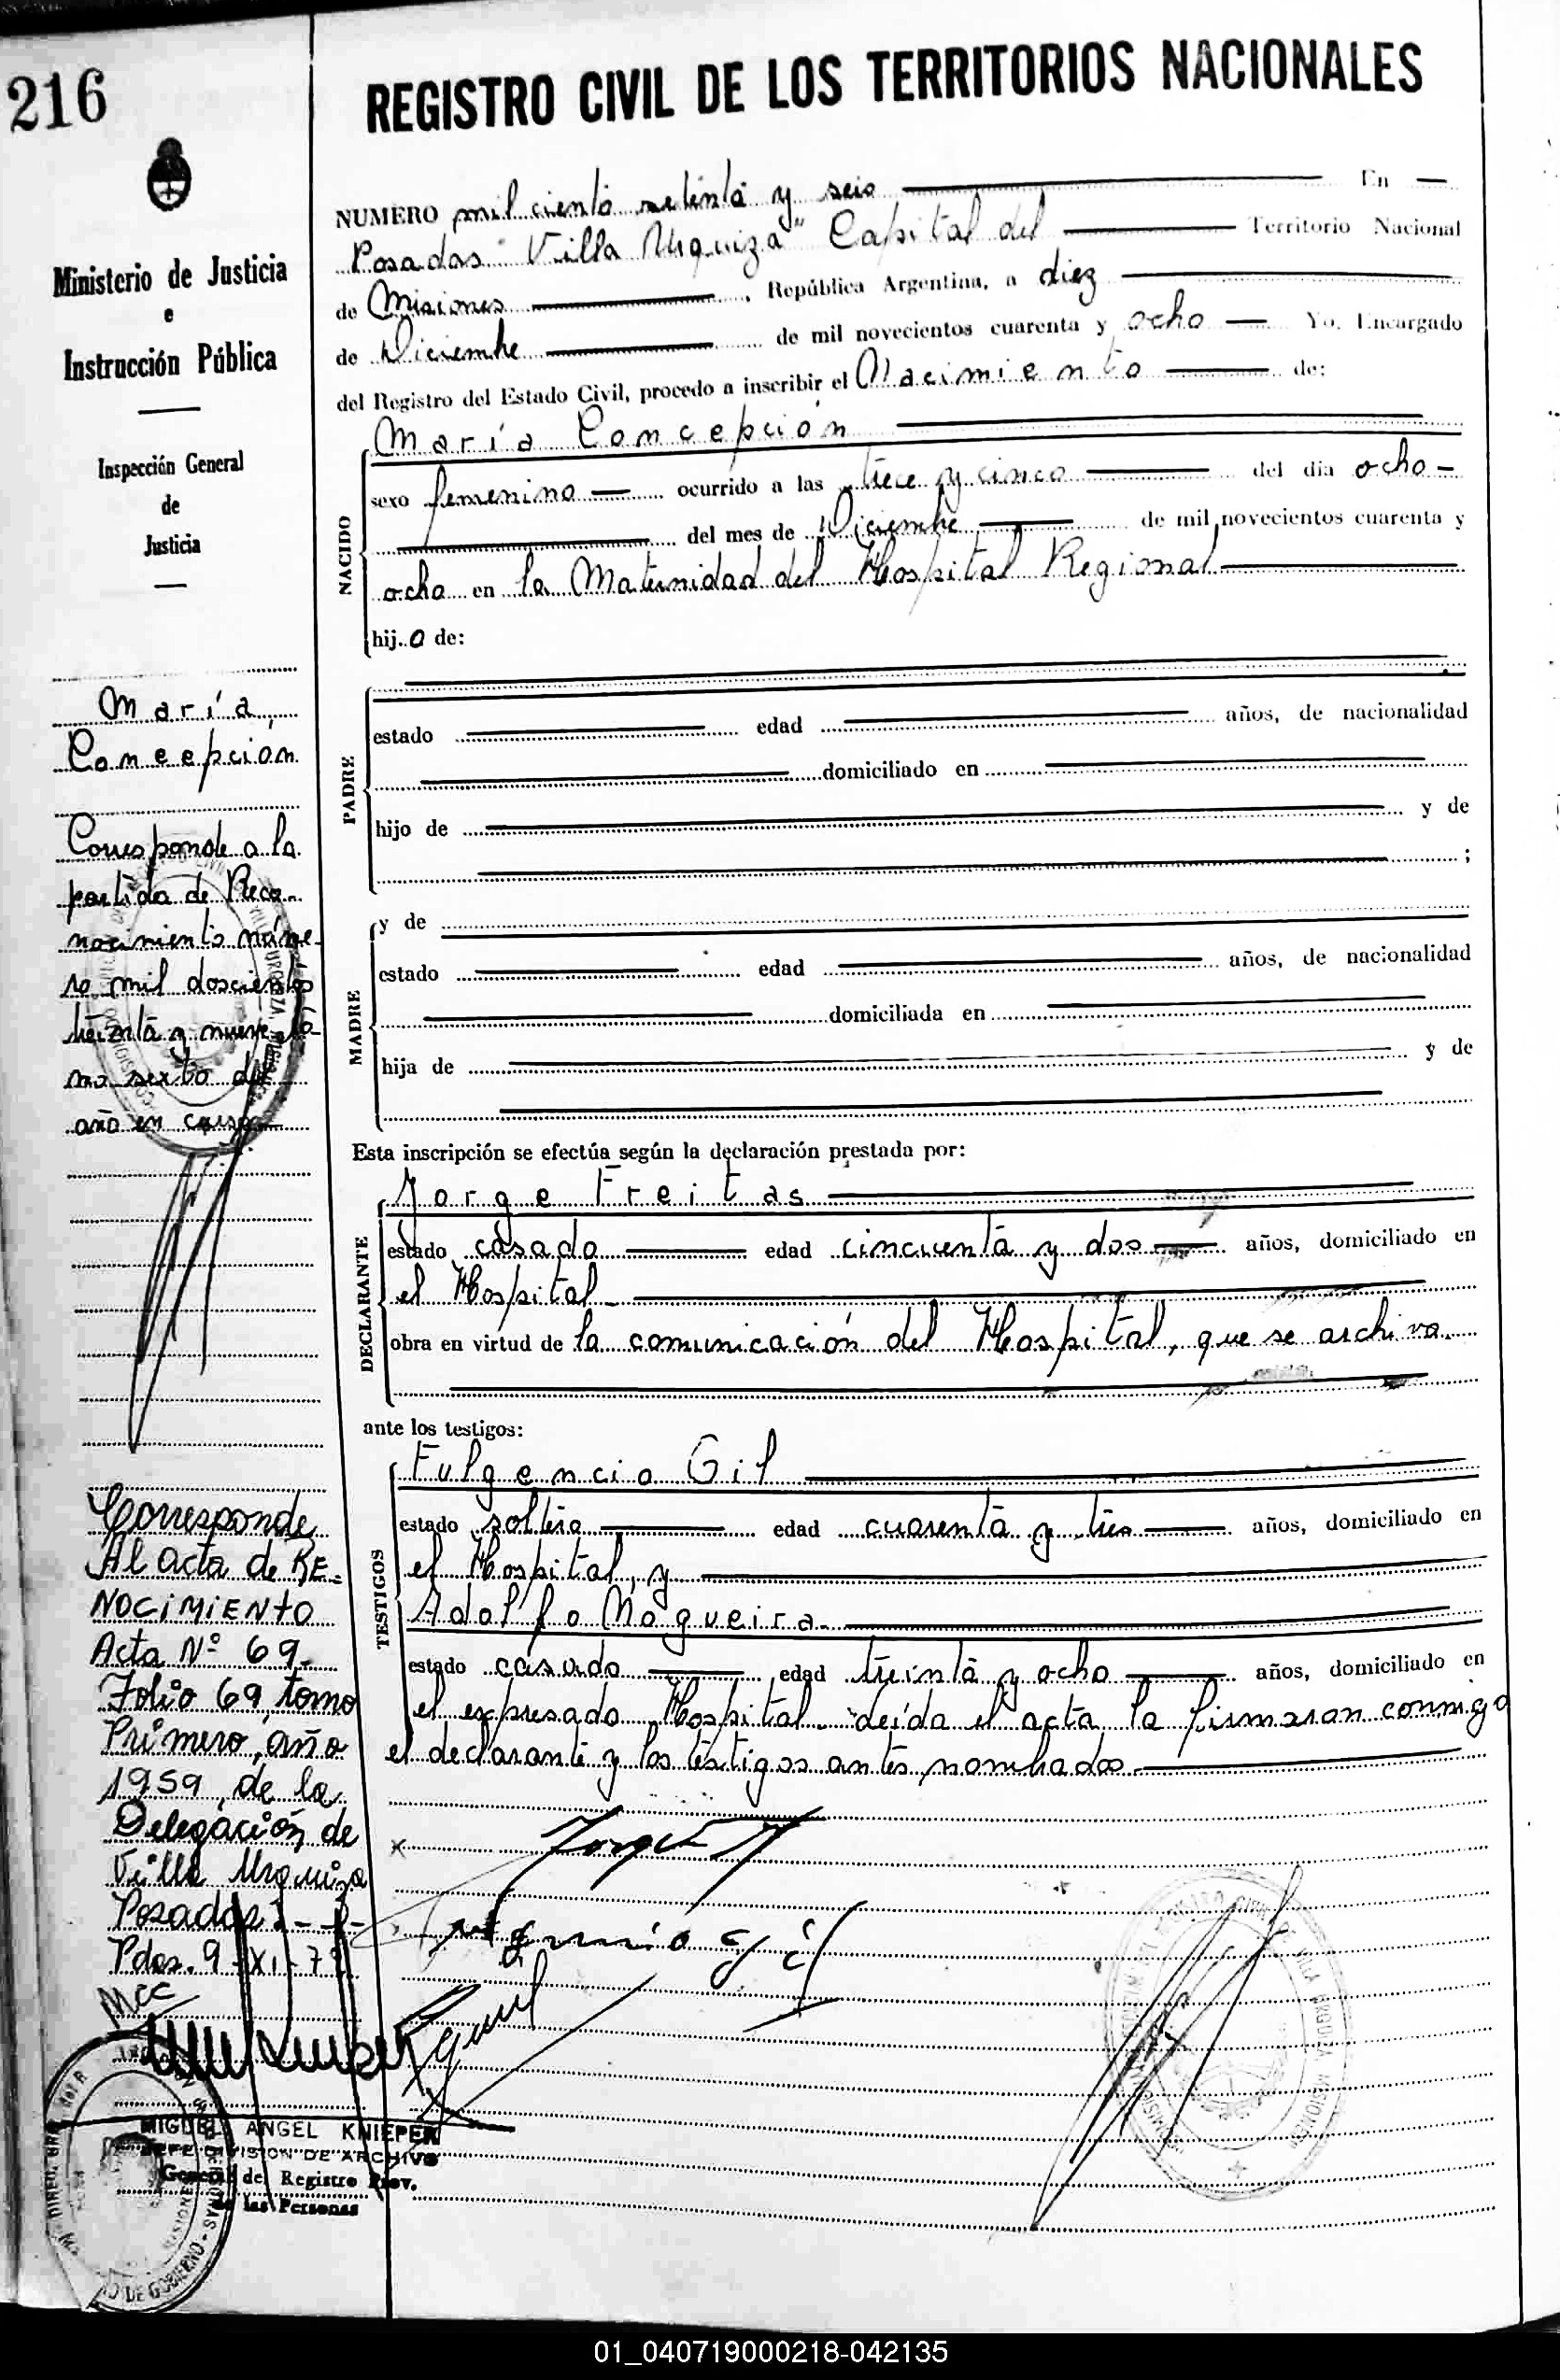 216
REGISTRO CIVIL DE LOS TERRITORIOS NACIONALES
Ministerio de Justicia
e
Instrucción Pública
Inspección General
de
Justicia
NUMERO mil ciento setenta y seis En
Posadas "Villa Urquiza" Capital del Territorio Nacional
de Misiones, República Argentina, a diez
de Diciembre de mil novecientos cuarenta y ocho Yo, Encargado
del Registro del Estado Civil, procedo a inscribir el Nacimiento de:
NACIDO
María Concepción
sexo femenino ocurrido a las trece y cinco del día ocho
del mes de Diciembre de mil novecientos cuarenta y
ocho en la Maternidad del Hospital Regional
hij.a de:
PADRE
estado edad años, de nacionalidad
domiciliado en
hijo de y de
;
MADRE
y de
estado edad años, de nacionalidad
domiciliada en
hija de y de
Esta inscripción se efectúa según la declaración prestada por:
DECLARANTE
Jorge Freitas
estado casado edad cincuenta y dos años, domiciliado en
el Hospital
obra en virtud de la comunicación del Hospital, que se archiva.
ante los testigos:
TESTIGOS
Fulgencio Gil
estado soltero edad cuarenta y tres años, domiciliado en
el Hospital, y
Adolfo Nogueira
estado casado edad treinta y ocho años, domiciliado en
el expresado Hospital. Leída el acta la firmaran conmigo
el declarante y los testigos antes nombrados.
María
Concepción
Corresponde a la
partida de Reco-
nocimiento núme-
ro mil doscientos
treinta y nueve to-
mo sexto del
año en curso
Corresponde
Al acta de RE-
NOCIMIENTO
Acta Nº 69
Folio 69, tomo
Primero, año
1959, de la
Delegación de
Villa Urquiza
Posadas
Pdas. 9-XI-7
MCC
MIGUEL ANGEL KNIEPER
JEFE DIVISION DE ARCHIVO
General del Registro Prov.
de las Personas
01_040719000218-042135